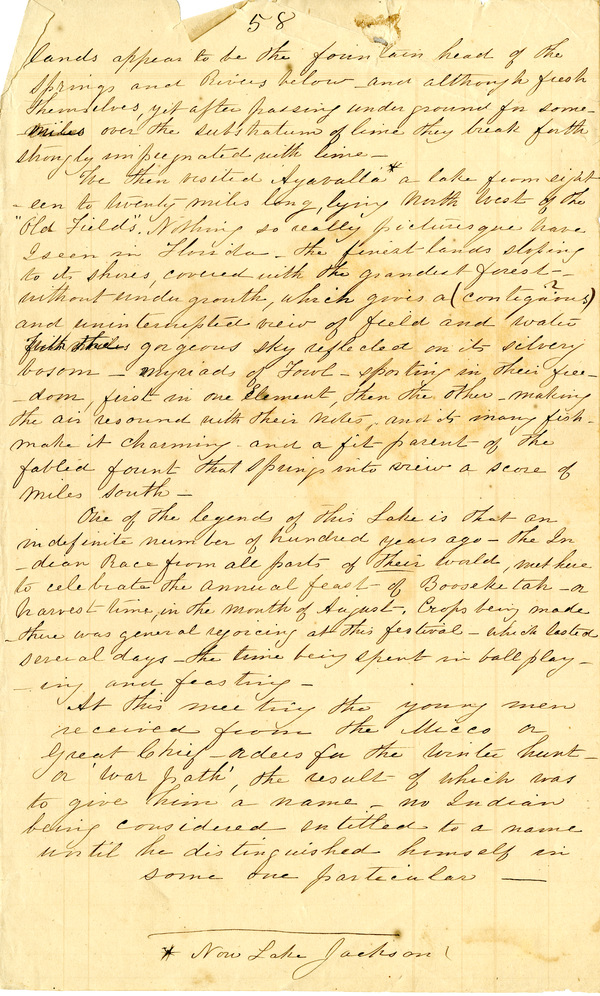 58
lands appear to be the fountain head of the
springs and Rivers below and although fresh
themselves yet after passing underground for some
miles over the substratum of lime they break forth
strongly impregnated with lime -
We then visited Ayavalla * a lake from eight
-een to twenty miles long, lying North West of the
"Old Fields". Nothing so really picturesque have
I seen in Florida - the finest lands sloping
to its shores, covered with the grandest forest -
without undergrowth, which gives a (contiguous?)
and uninterrupted view of field and water
gorgeous sky reflected on its silvery
bosom - myriads of Fowl - sporting in their free-
-dom, first in one Element, then the other - making
the air resound with their notes, and its many fish -
make it charming - and a fit parent of the
fabled fount that springs into view a score of
miles south -
One of the legends of this Lake is that an
indefinite number of hundred years ago - the In
-dian Race from all parts of their world, met here
to celebrate the annual feast of Boosketah - or
harvest time, in the month of August, Crops being made
- there was general rejoicing at this festival - which lasted
several days - the time being spent in ball play -
- ing and feasting -
At this meeting the young men
received from the Micco or
Great Chief - orders for the winter hunt -
or 'War path', the result of which was
to give him a name - no Indian
being considered entitled to a name
until he distinguished himself in
some one particular -
* Now Lake Jackson